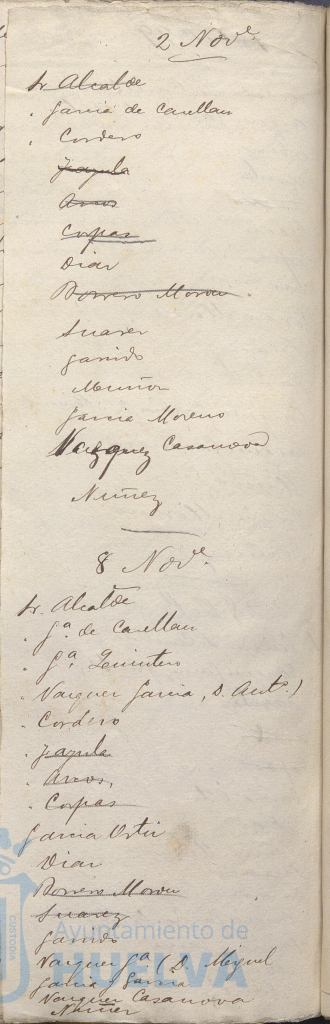 2 Nov.e
Sr Alcalde
. Garcia de Casellan
. Cordero
Jayula
Arcos
Corpas
Diaz
Borrero Moron
Suarez
Garrido
Muñoz
Garcia Moreno
Vazquez Casanova
Nuñez
8 Nov.e
Sr. Alcalde
. G.a de Casellan
. G.a Quintero
. Vazquez Garcia, D. Ant.o)
. Cordero
. Jayula
. Arcos,
. Corpas
Garcia Ortiz
Diaz
Borrero Moron
Suarez
Garrido
Vazquez G.a (D. Miguel
Garcia y Garcia
Vazquez Casanova
Nuñez
Ayuntamiento de
HUELVA
CUSTODIA